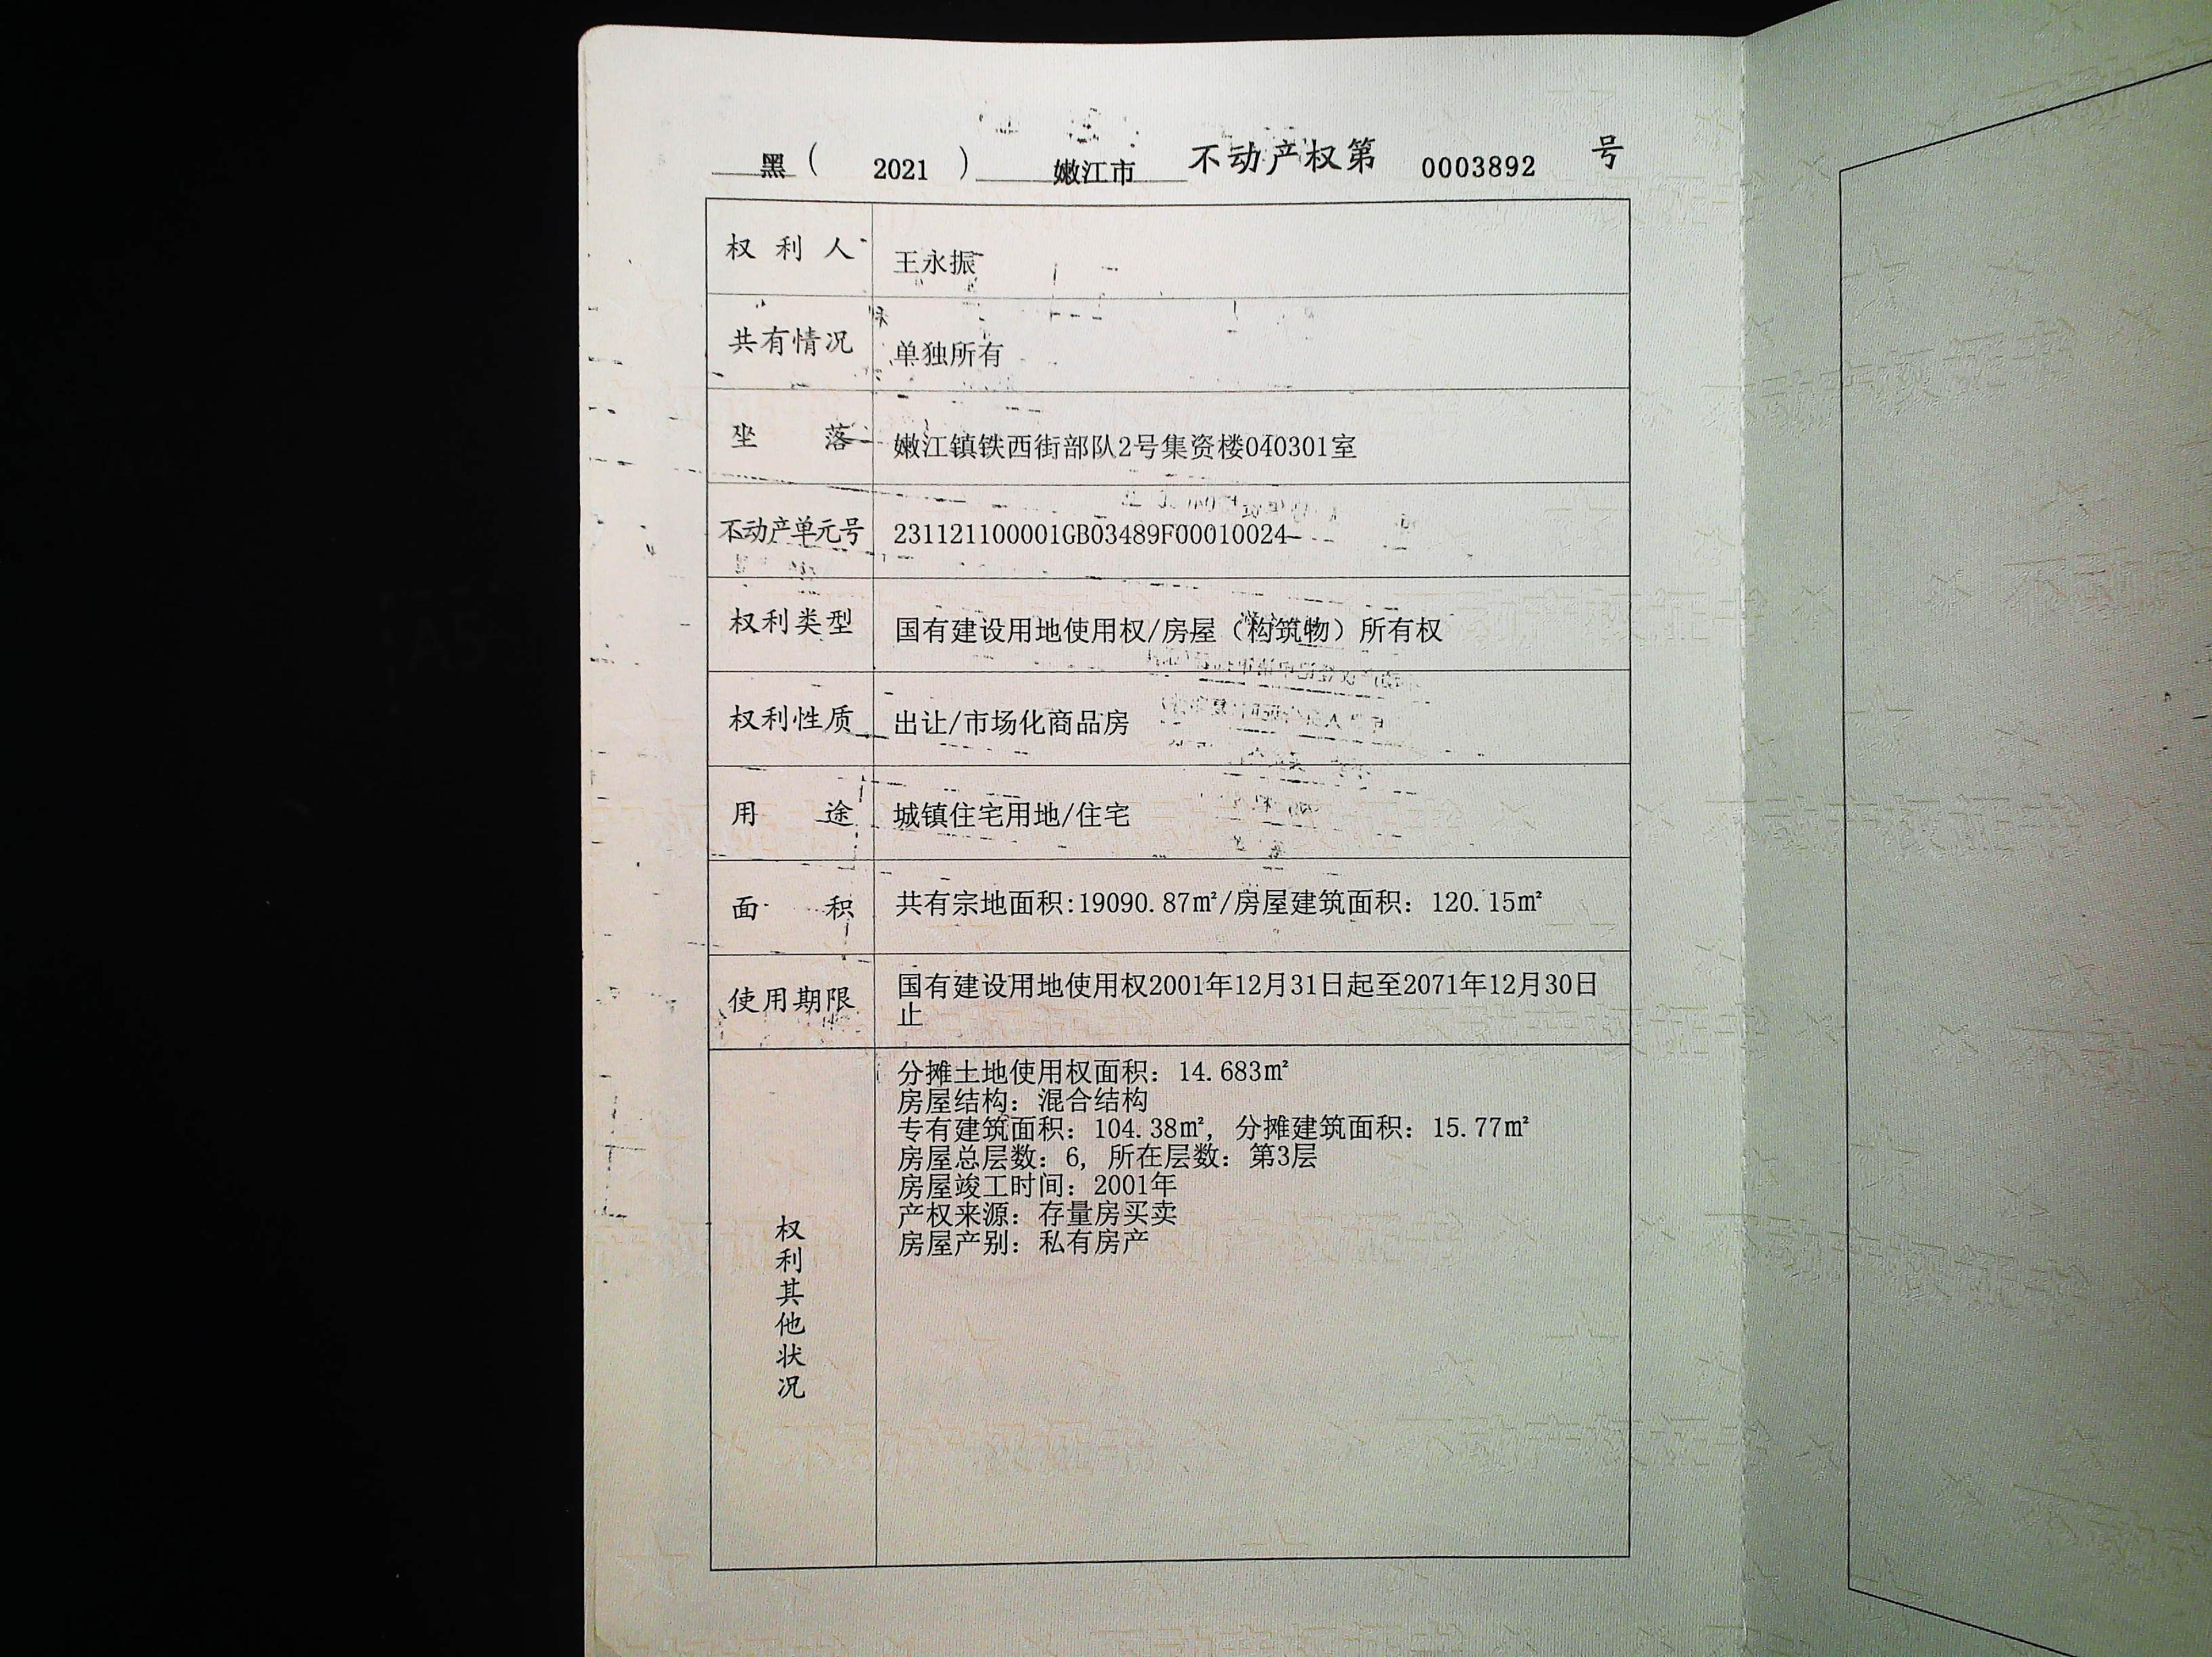 黑（ 2021 ） 嫩江市 不动产权第 0003892 号
权利人 王永振
共有情况 单独所有
坐落 嫩江镇铁西街部队2号集资楼040301室
不动产单元号 231121100001GB03489F00010024
权利类型 国有建设用地使用权/房屋（构筑物）所有权
权利性质 出让/市场化商品房
用途 城镇住宅用地/住宅
面积 共有宗地面积:19090.87㎡/房屋建筑面积：120.15㎡
使用期限 国有建设用地使用权2001年12月31日起至2071年12月30日
止
权利其他状况
分摊土地使用权面积：14.683㎡
房屋结构：混合结构
专有建筑面积：104.38㎡，分摊建筑面积：15.77㎡
房屋总层数：6，所在层数：第3层
房屋竣工时间：2001年
产权来源：存量房买卖
房屋产别：私有房产